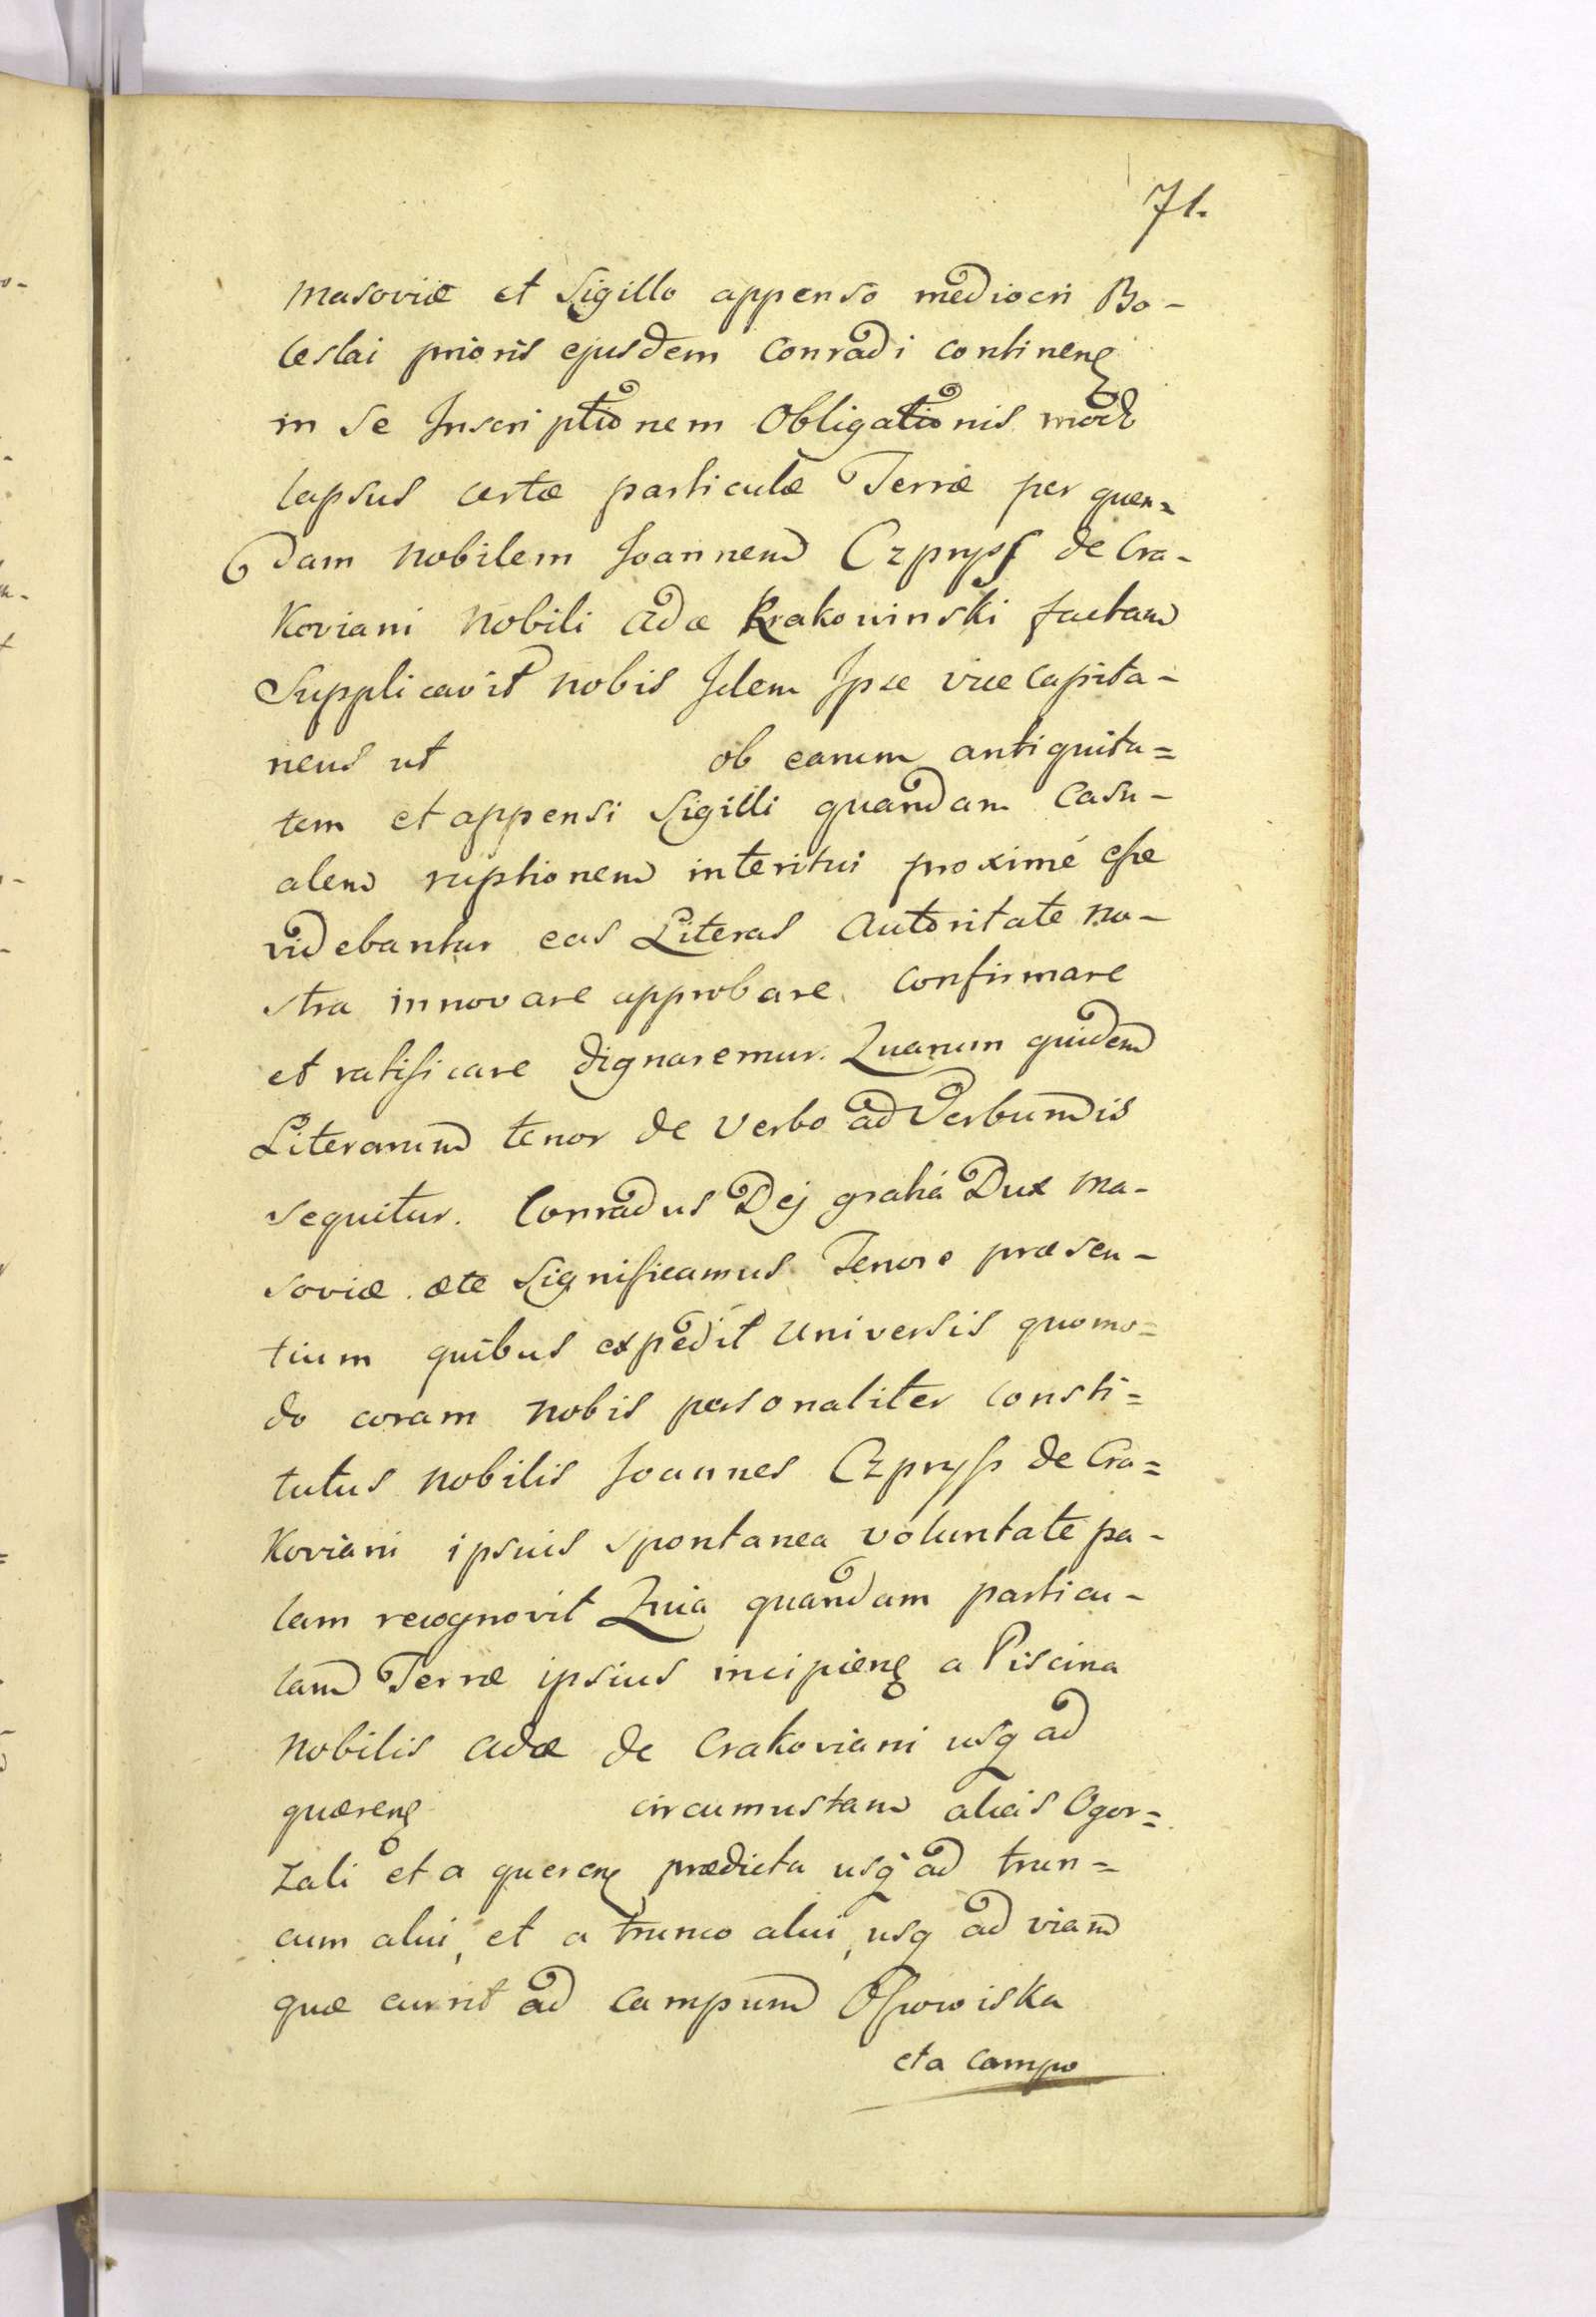 71.
Masoviæ et Sigillo appenso mediocri Bo-
leslai prioris ejusdem Conradi continenѯ
in se Inscriptionem Obligationis modo
lapsus certæ particulæ Terræ per quen=
dam Nobilem Joannem Czpryss de Cra-
koviani Nobili Adæ Krakowinski factam
Supplicavit nobis Idem Ipse vice capita-
neus ut ob earum antiquita=
tem et appensi Sigilli quandam Casu-
alem ruptionem interitui proximé esse
videbantur eas Literas Autoritate no-
stra innovare approbare confirmare
et ratificare dignaremur. Quarum quidem
Literarum tenor de Verbo ad Verbum is
sequitur. Conradus Dej gratiá Dux Ma-
soviæ ætc Significamus Tenore præsen-
tium quibus expedit Universis quomo=
do coram nobis personaliter consti=
tutus Nobilis Joannes Czpryss de Cra=
koviani ipsius spontanea voluntate pa-
lam recognovit Quia quandam particu-
lam Terræ ipsius incipienѯ a Piscina
Nobilis Adæ de Crakoviani usq ad
quærenѯ circumustam alias Ogor=
zali et a querenѯ prædicta usq ad trun=
cum alni, et a trunco alni, usq ad viam
quæ currit ad Campum Ossowiska
et a campo